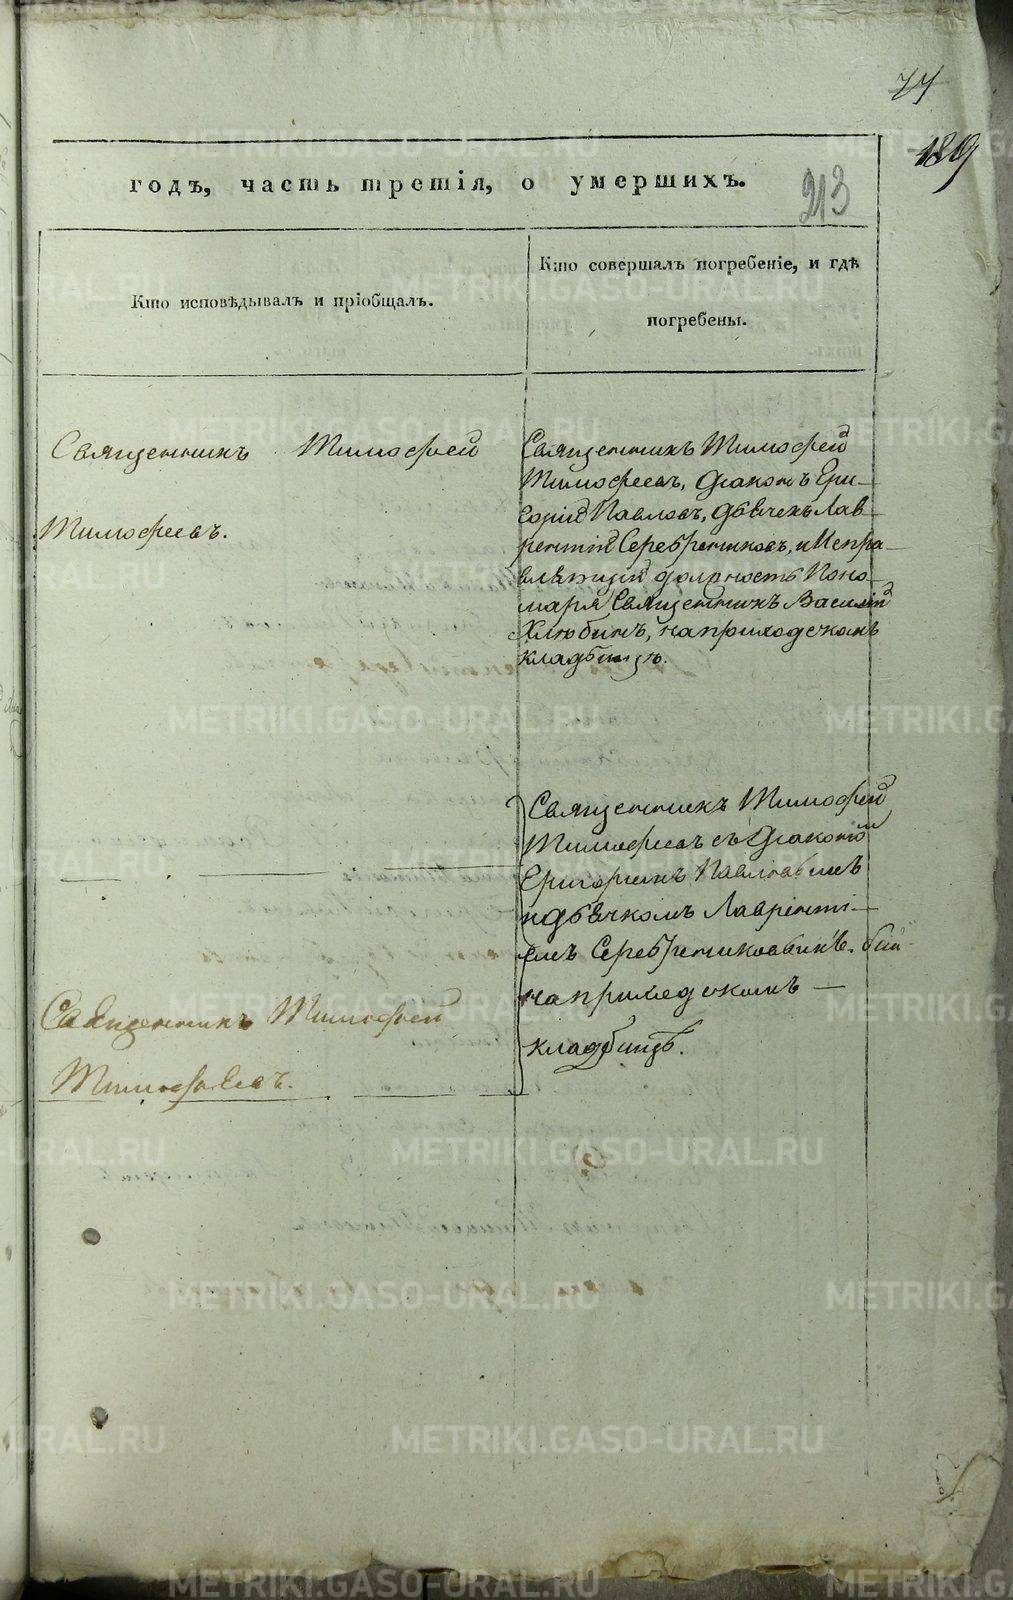 74
189
годъ, часть третія, о умершихъ.
213
Кто исповѣдывалъ и пріобщалъ.
Кто совершалъ погребеніе, и гдѣ
погребены.
Священникъ Тимофей
Тимофеевъ.
Священникъ Тимофей
Тимофеевъ, Діаконъ Гри-
горій Павловъ, дьячекъ Лав-
рентій Серебрениковъ, и Испра-
вляющій должность Поно-
маря Священникъ Василій
Хлюбинъ, на приходскомъ
кладбищѣ.
Священникъ Тимофей
Тимофеевъ съ Діакономъ
Григоріемъ Павловымъ
и дьячкомъ Лавренті-
емъ Серебрениковымъ.
на приходскомъ
кладбищѣ.
Священникъ Тимофей
Тимофѣевъ.
METRIKI.GASO-URAL.RU